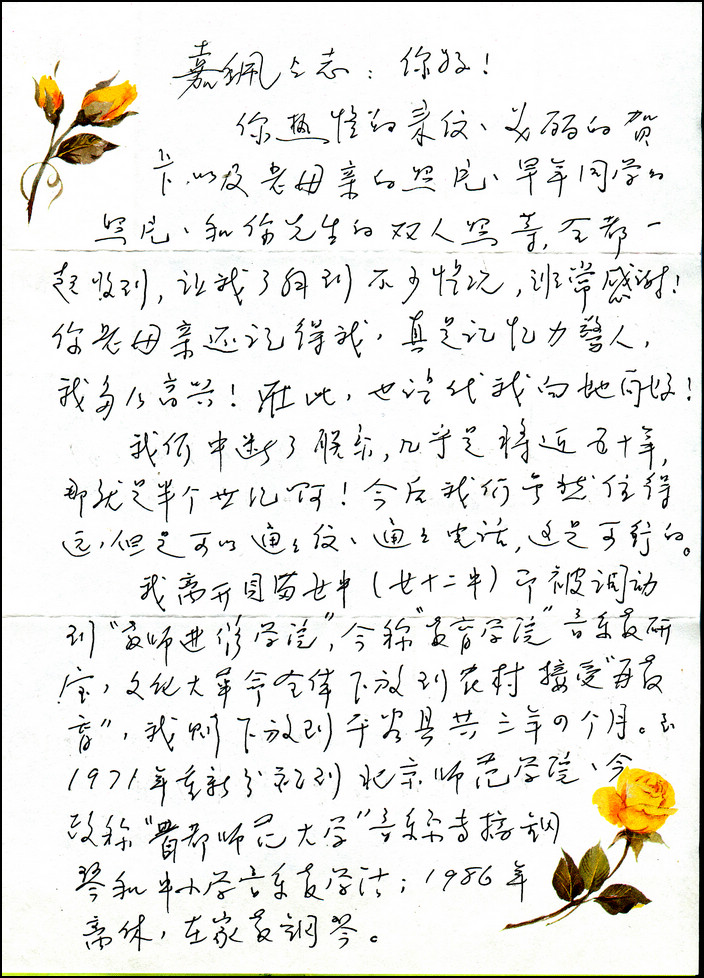 嘉珮同志：你好！
你热情的来信、美丽的贺
卡，以及老母亲的照片、早年同学的
照片、和你先生的双人照等，全都一
起收到，让我了解到不少情况，非常感谢！
你老母亲还记得我，真是记忆力惊人，
我多么高兴！在此，也请代我向她问好！
我们中断了联系，几乎是将近五十年，
那就是半个世纪啊！今后我们虽然住得
远，但是可以通通信、通通电话，这是可行的。
我离开贝满女中（女十二中）即被调动
到“教师进修学院”，今称“教育学院”音乐教研
室，文化大革命全体下放到农村接受“再教
育”，我则下放到平谷县共三年四个月。至
1971年重新分配到北京师范学院、今
改称“首都师范大学”音乐系专授钢
琴和中小学音乐教学法；1986年
离休，在家教钢琴。